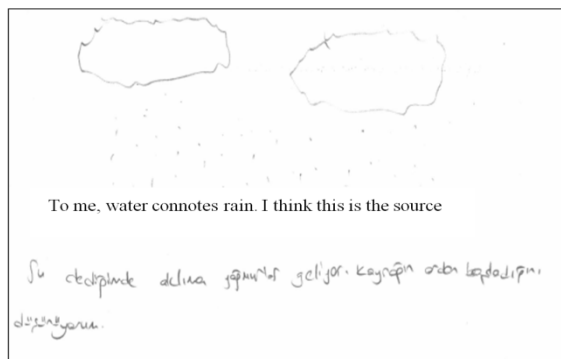 To me, water connotes rain. I think this is the source
Su dediğimde aklıma yağmurlar geliyor. Kaynağın ordan başladığını
düşünüyorum.